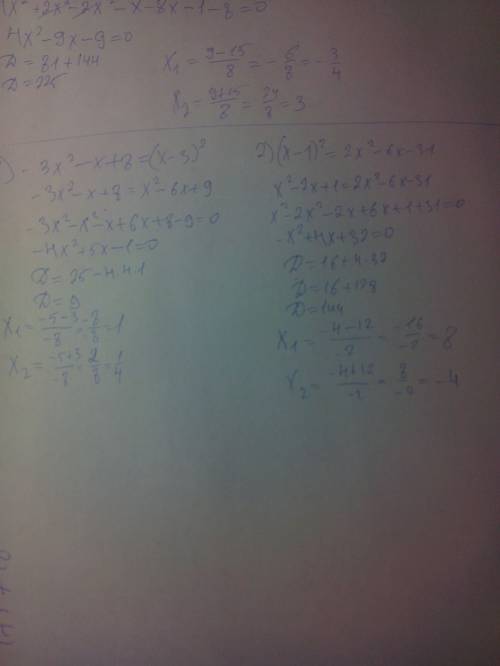 x² + 2x² - 2x² - x - 8x - 1 - 8 = 0
4x² - 9x - 9 = 0
D = 81 + 144
D = 225
x₁ = (9-15)/8 = -6/8 = -3/4
x₂ = (9+15)/8 = 24/8 = 3
) -3x² - x + 8 = (x-3)²
-3x² - x + 8 = x² - 6x + 9
-3x² - x² - x + 6x + 8 - 9 = 0
-4x² + 5x - 1 = 0
D = 25 - 4·4·1
D = 9
x₁ = (-5-3)/-8 = -8/-8 = 1
x₂ = (-5+3)/-8 = 2/8 = 1/4
2) (x-1)² = 2x² - 6x - 31
x² - 2x + 1 = 2x² - 6x - 31
x² - 2x² - 2x + 6x + 1 + 31 = 0
-x² + 4x + 32 = 0
D = 16 + 4·32
D = 16 + 128
D = 144
x₁ = (-4-12)/-2 = -16/-2 = 8
x₂ = (-4+12)/-2 = 8/-2 = -4